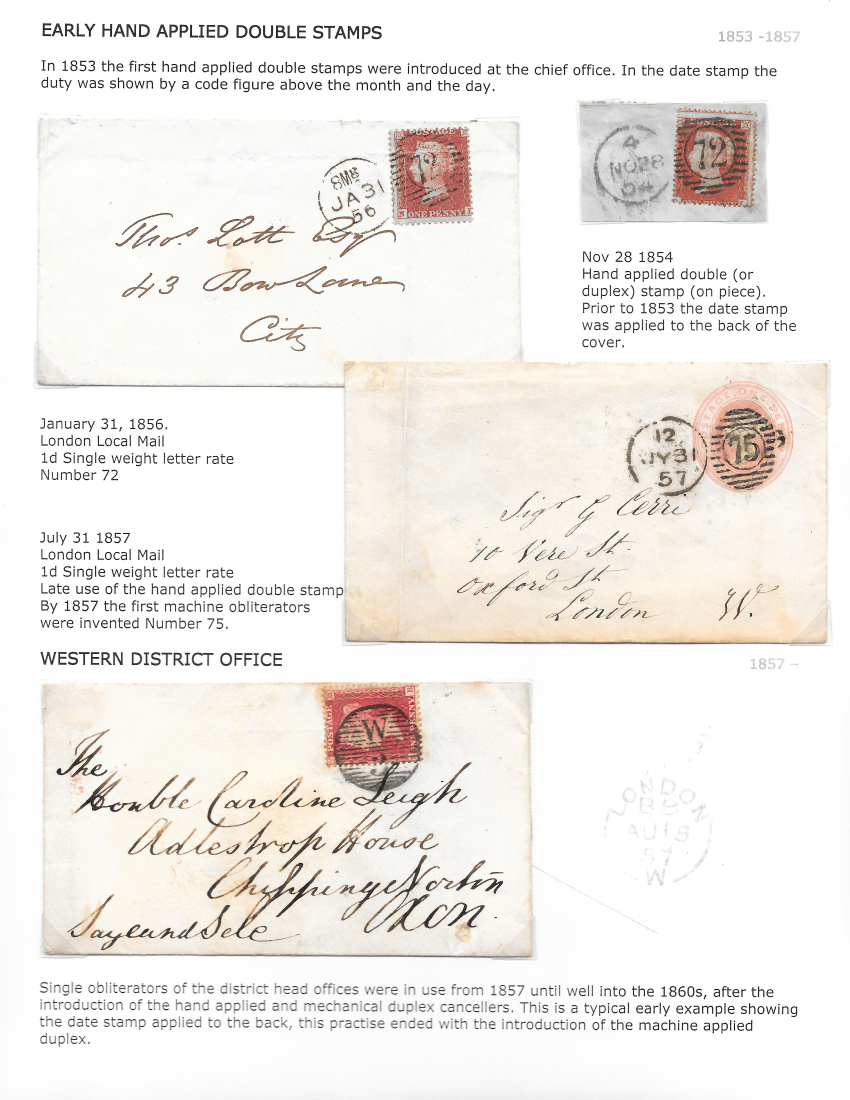 EARLY HAND APPLIED DOUBLE STAMPS
1853 -1857
In 1853 the first hand applied double stamps were introduced at the chief office. In the date stamp the
duty was shown by a code figure above the month and the day.
8M
JA 31
56
72
ONE PENNY
Thos. Lott Esq
43 Bow Lane
City
4
NO 28
54
72
Nov 28 1854
Hand applied double (or
duplex) stamp (on piece).
Prior to 1853 the date stamp
was applied to the back of the
cover.
January 31, 1856.
London Local Mail
1d Single weight letter rate
Number 72
12
JY 31
57
75
Sigr G Cerri
10 Vere St.
Oxford St
London W.
July 31 1857
London Local Mail
1d Single weight letter rate
Late use of the hand applied double stamp
By 1857 the first machine obliterators
were invented Number 75.
WESTERN DISTRICT OFFICE
1857 –
POSTAGE
W
The
Honble Caroline Leigh
Adlestrop House
Chipping Norton
Oxon.
Saye and Sele
LONDON
AU 15
57
W
Single obliterators of the district head offices were in use from 1857 until well into the 1860s, after the
introduction of the hand applied and mechanical duplex cancellers. This is a typical early example showing
the date stamp applied to the back, this practise ended with the introduction of the machine applied
duplex.